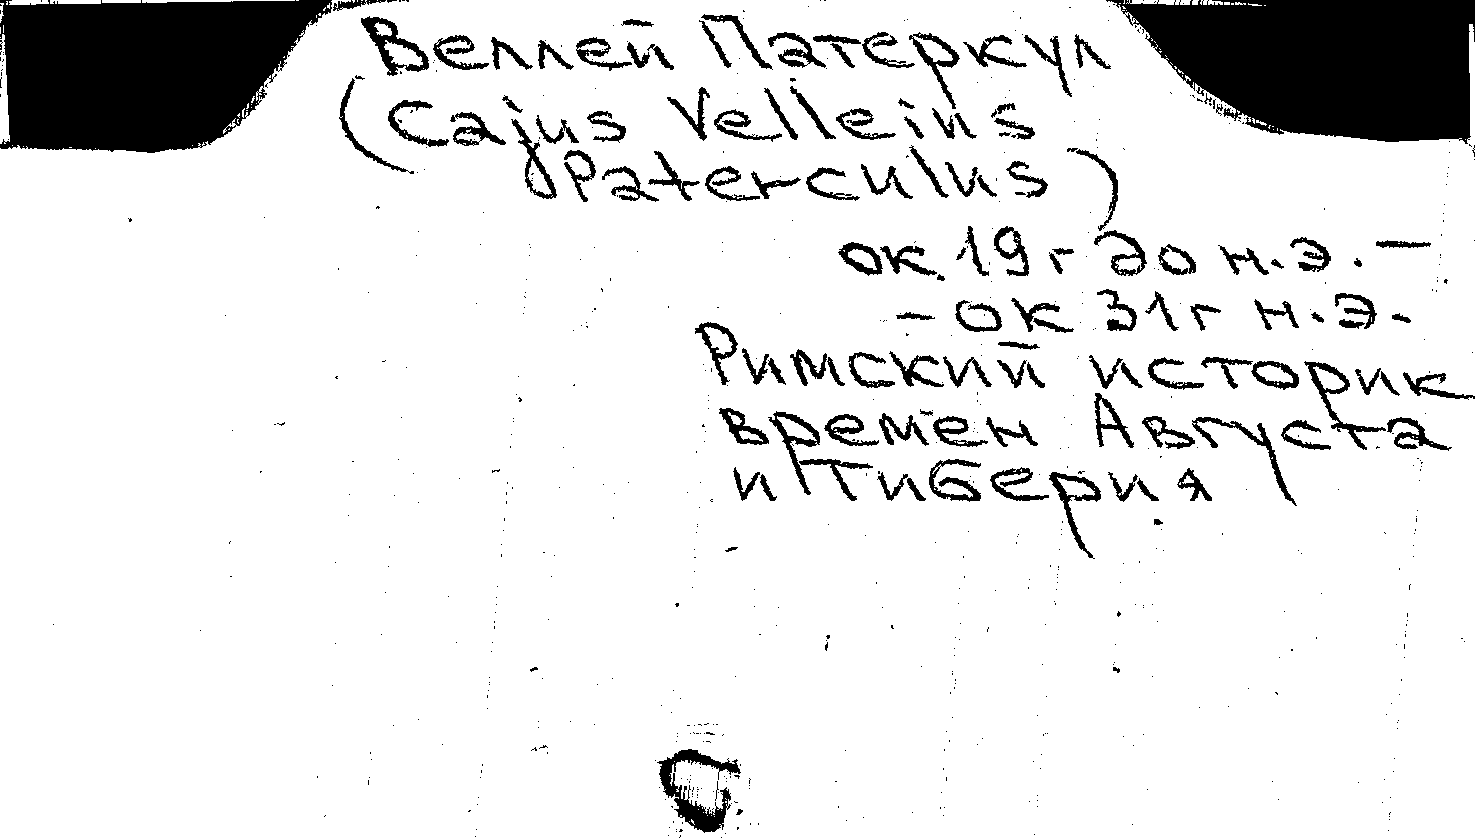 Веллей Патеркул
(Cajus Velleius
Paterculus)
ок 19 г до н.э. –
– ок 31 г н.э.
Римский историк
времен Августа
и Тиберия